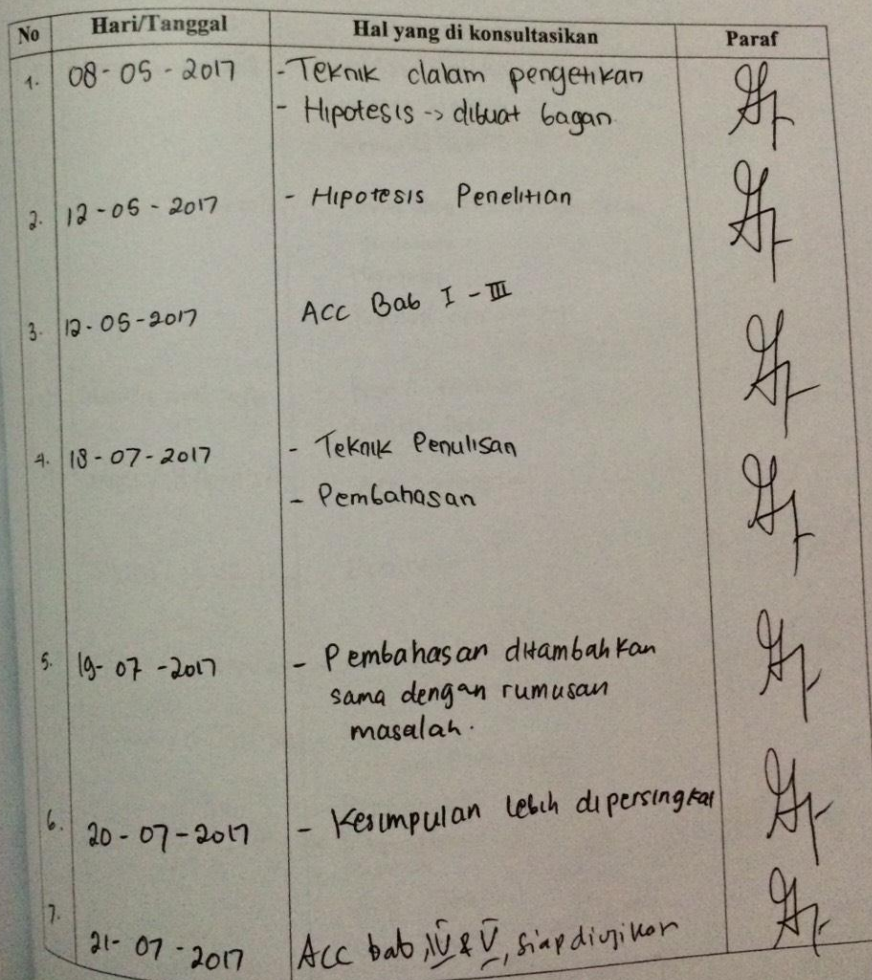 No Hari/Tanggal Hal yang di konsultasikan Paraf
1. 08-05-2017 - Teknik dalam pengetikan
- Hipotesis -> dibuat bagan.
2. 12-05-2017 - Hipotesis Penelitian
3. 12-05-2017 ACC Bab I - III
4. 18-07-2017 - Teknik Penulisan
- Pembahasan
5. 19-07-2017 - Pembahasan ditambahkan
sama dengan rumusan
masalah.
6. 20-07-2017 - Kesimpulan lebih dipersingkat
7. 21-07-2017 ACC bab IV & V, siap diujikan